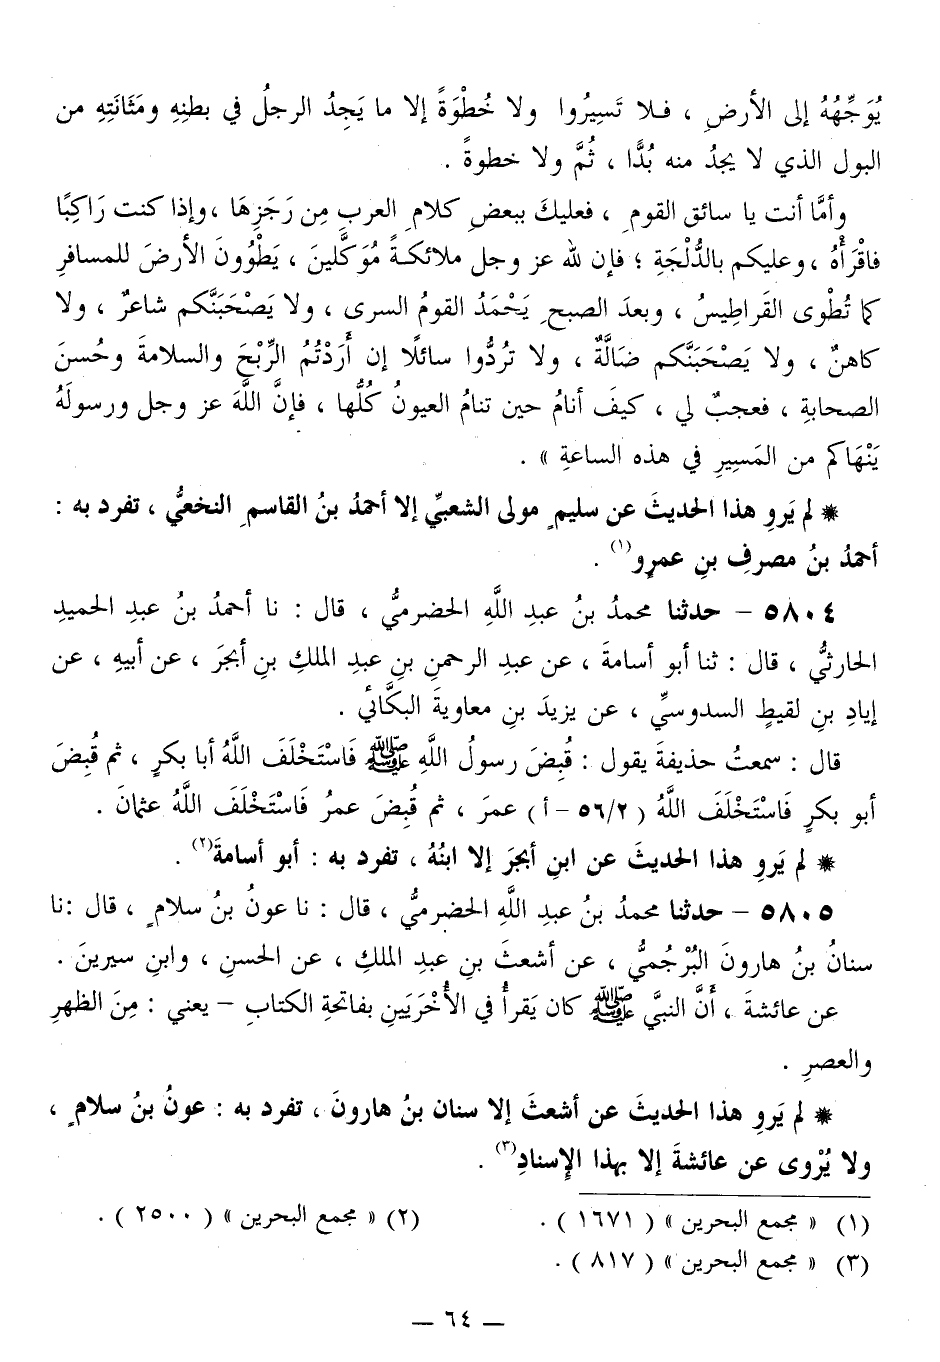 يُوَجِّهُهُ إلى الأرضِ ، فـلا تَسِيرُوا ولا خُطْوَةً إلا ما يَجِدُ الرجلُ في بطنِهِ ومَثَانَتِهِ من
البول الذي لا يجدُ منه بُدًّا ، ثُمَّ ولا خطوةً .
وأمَّا أنت يا سائق القومِ ، فعليكَ ببعضِ كلامِ العربِ مِن رَجَزِهَا ، وإذا كنت رَاكِبًا
فاقْرَأْهُ ، وعليكم بالدُّلْجَةِ ؛ فإن لله عز وجل ملائكـةً مُوَكَّلينَ ، يَطْوُونَ الأرضَ للمسافرِ
كما تُطْوى القَراطِيسُ ، وبعدَ الصبحِ يَحْمَدُ القومُ السرى ، ولا يَصْحَبَنَّكم شاعرٌ ، ولا
كاهنٌ ، ولا يَصْحَبَنَّكم ضَالَّةٌ ، ولا تَرُدُّوا سائلًا إن أَرَدْتُمُ الرِّبْحَ والسلامةَ وحُسنَ
الصحابةِ ، فعجبٌ لي ، كيفَ أنامُ حين تنامُ العيونُ كُلُّها ، فإنَّ اللَّهَ عز وجل ورسولَهُ
يَنْهَاكم من المَسِيرِ في هذه الساعةِ » .
* لم يَروِ هذا الحديثَ عن سليمٍ مولى الشعبيِّ إلا أحمدُ بنُ القاسمِ النخعيُّ ، تفرد به :
أحمدُ بنُ مصرفِ بنِ عمرٍو(١) .
٥٨٠٤ – حدثنا محمدُ بنُ عبدِ اللَّهِ الحضرميُّ ، قال : نا أحمدُ بنُ عبدِ الحميدِ
الحارثيُّ ، قال : ثنا أبو أسامةَ ، عن عبدِ الرحمنِ بنِ عبدِ الملكِ بنِ أبجرَ ، عن أبيهِ ، عن
إيادِ بنِ لقيطٍ السدوسيِّ ، عن يزيدَ بنِ معاويةَ البكَّائي .
قال : سمعتُ حذيفةَ يقول : قُبِضَ رسولُ اللَّهِ ﷺ فَاسْتَخْلَفَ اللَّهُ أبا بكرٍ ، ثم قُبِضَ
أبو بكرٍ فَاسْتَخْلَفَ اللَّهُ ( ٥٦/٢ – أ ) عمرَ ، ثم قُبِضَ عمرُ فَاسْتَخْلَفَ اللَّهُ عثمانَ .
* لم يَروِ هذا الحديثَ عن ابنِ أبجرَ إلا ابنُهُ ، تفرد به : أبو أسامةَ(٢) .
٥٨٠٥ – حدثنا محمدُ بنُ عبدِ اللَّهِ الحضرميُّ ، قال : نا عونُ بنُ سلامٍ ، قال :نا
سنانُ بنُ هارونَ البُرْجُميُّ ، عن أشعثَ بنِ عبدِ الملكِ ، عن الحسنِ ، وابنِ سيرينَ .
عن عائشةَ ، أَنَّ النبيَّ ﷺ كان يَقرأُ في الأُخْرَيَينِ بفاتحةِ الكتابِ – يعني : مِنَ الظهرِ
والعصرِ .
* لم يَروِ هذا الحديثَ عن أشعثَ إلا سنان بنُ هارونَ ، تفرد به : عونُ بنُ سلامٍ ،
ولا يُرْوى عن عائشةَ إلا بهذا الإِسنادِ(٣) .
(١) « مجمع البحرين » ( ١٦٧١ ) .
(٢) « مجمع البحرين » ( ٢٥٠٠ ) .
(٣) « مجمع البحرين » ( ٨١٧ ) .
– ٦٤ –